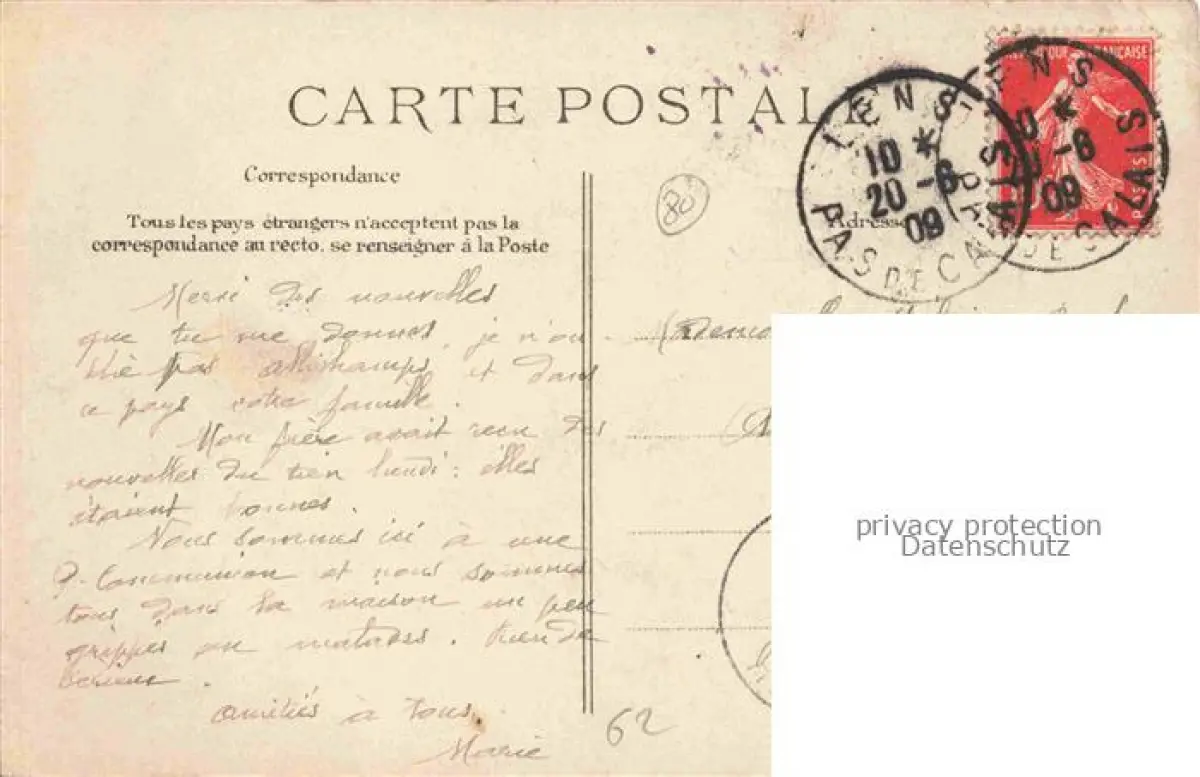 CARTE POSTALE
Correspondance
Tous les pays étrangers n'acceptent pas la
correspondance au recto, se renseigner á la Poste
Adresse
80
LENS
10 *
20 -6
09
PAS DE CALAIS
RÉPUBLIQUE FRANÇAISE
POSTES
LENS
09
PAS DE CALAIS
Merci des nouvelles
que tu me donnes, je n'ou-
blie pas et dans
ce pays votre famille.
Mon frère avait reçu des
nouvelles du tien lundi: elles
étaient bonnes.
Nous sommes ici à une
Communion et nous sommes
tous dans la maison un peu
grippés ou malades. Rien de
sérieux.
Amitiés à tous.
Marie
62
privacy protection
Datenschutz